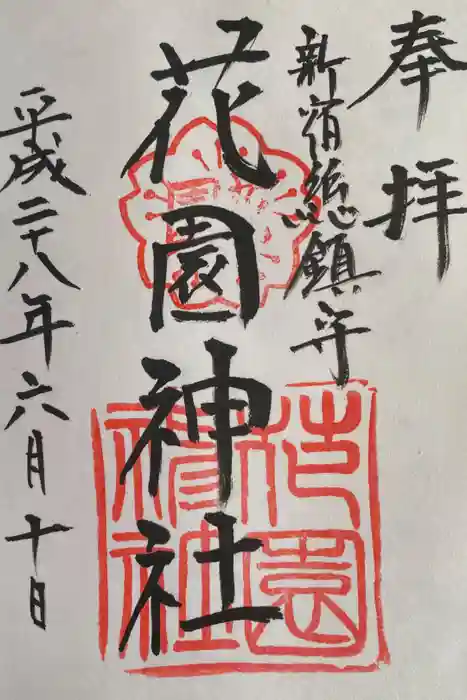 奉拝
新宿総鎮守
花園神社
平成二十八年六月十日
花園
神社